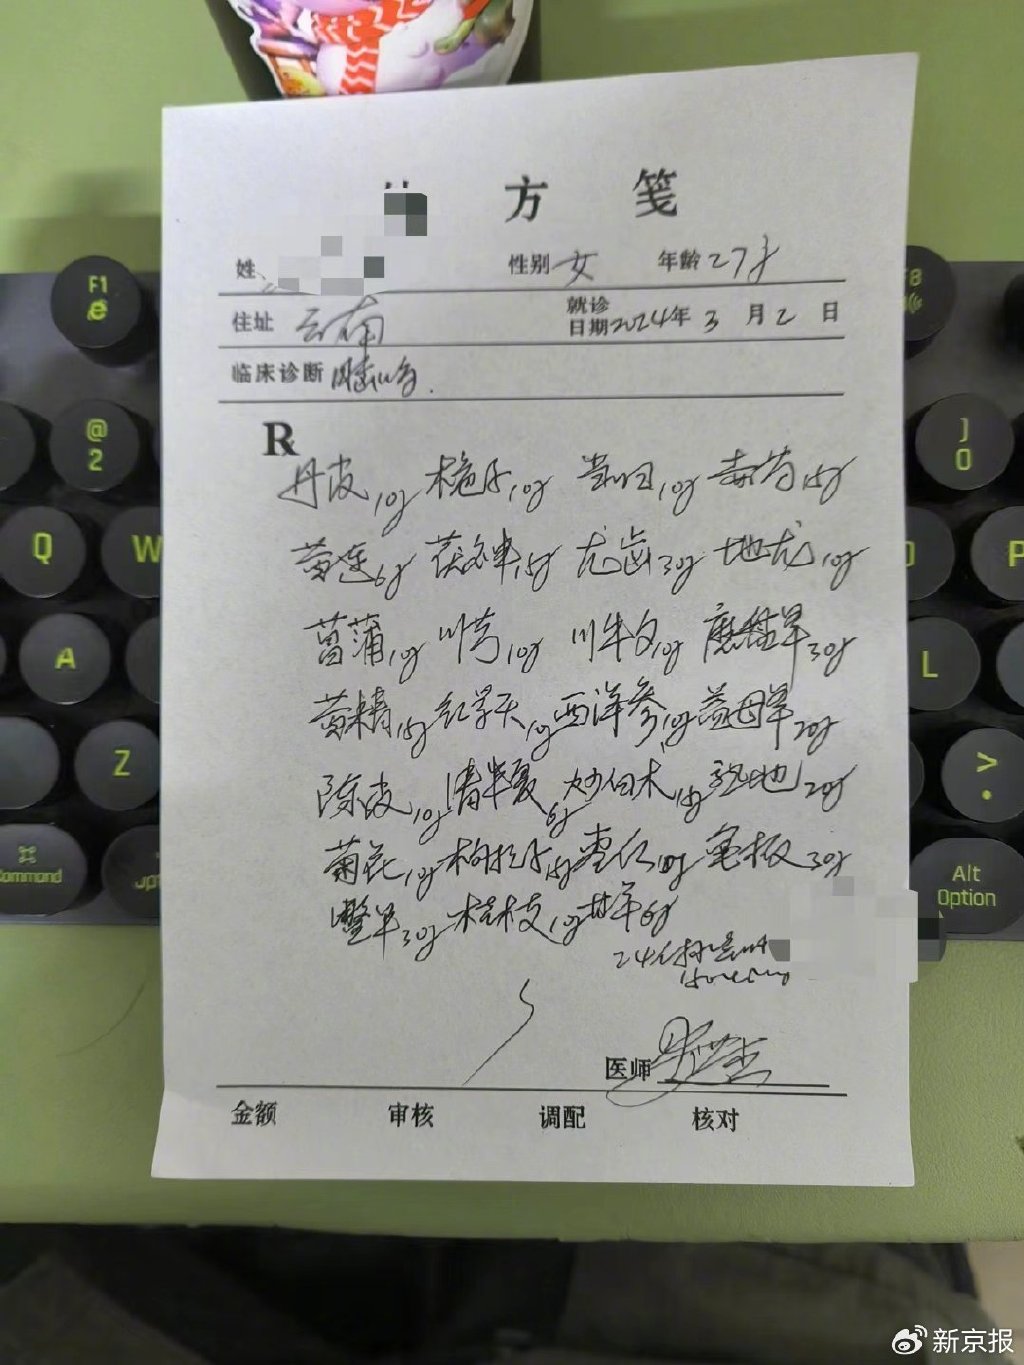 方 笺
姓
性别 女 年龄 27岁
住址 云南 就诊日期 2024年 3 月 2 日
临床诊断
R
丹皮10g 栀子10g 当归10g 赤芍15g
黄连6g 茯神15g 龙齿30g 地龙10g
菖蒲10g 川芎10g 川牛夕10g 鹿衔草30g
黄精15g 红景天10g 西洋参10g 益母草20g
陈皮10g 清半夏6g 炒白术15g 熟地20g
菊花10g 枸杞子15g 枣仁10g 龟板30g
30g 桂枝10g 甘草6g
24付
医师
金额 审核 调配 核对
F1
F8
@
2
)
0
Q
W
P
A
L
Z
>
.
Command
Alt
Option
新京报